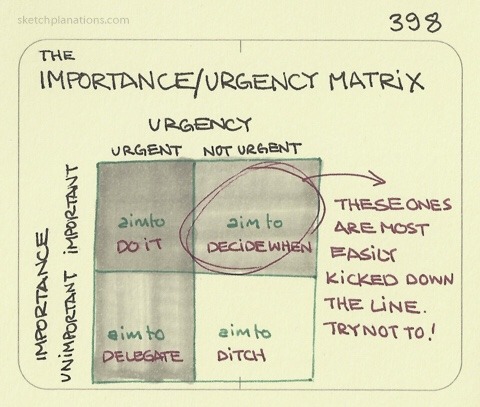 sketchplanations.com
398
THE
IMPORTANCE/URGENCY MATRIX
URGENCY
URGENT NOT URGENT
IMPORTANCE
UNIMPORTANT IMPORTANT
aim to
DO IT
aim to
DECIDE WHEN
aim to
DELEGATE
aim to
DITCH
THESE ONES
ARE MOST
EASILY
KICKED DOWN
THE LINE.
TRY NOT TO!